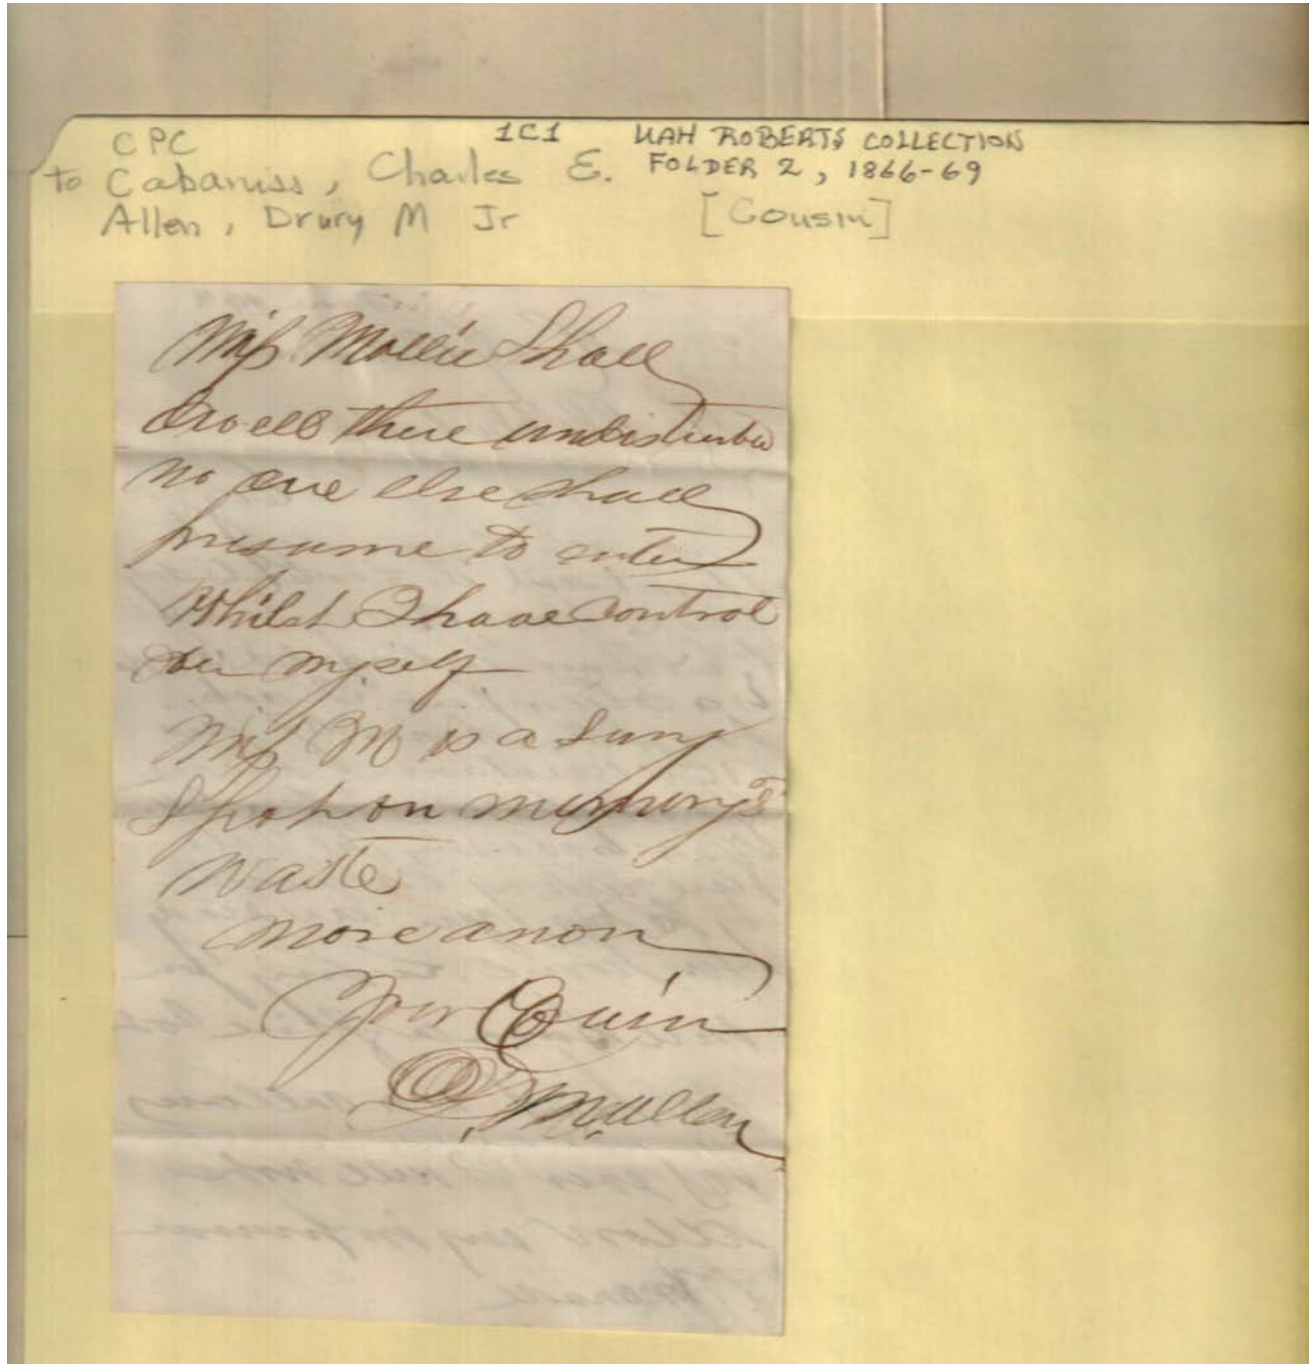 CPC 1C1 UAH ROBERTS COLLECTION
to Cabaniss, Charles E. FOLDER 2, 1866-69
Allen, Drury M Jr [Cousin]
Miss Mollie Shall
dwell there undisturbed
no one else shall
presume to enter
Whilst I have control
over myself
Miss M is a Suny
Spot on memory's
waste
more anon
Your Cousin
D. M. Allen